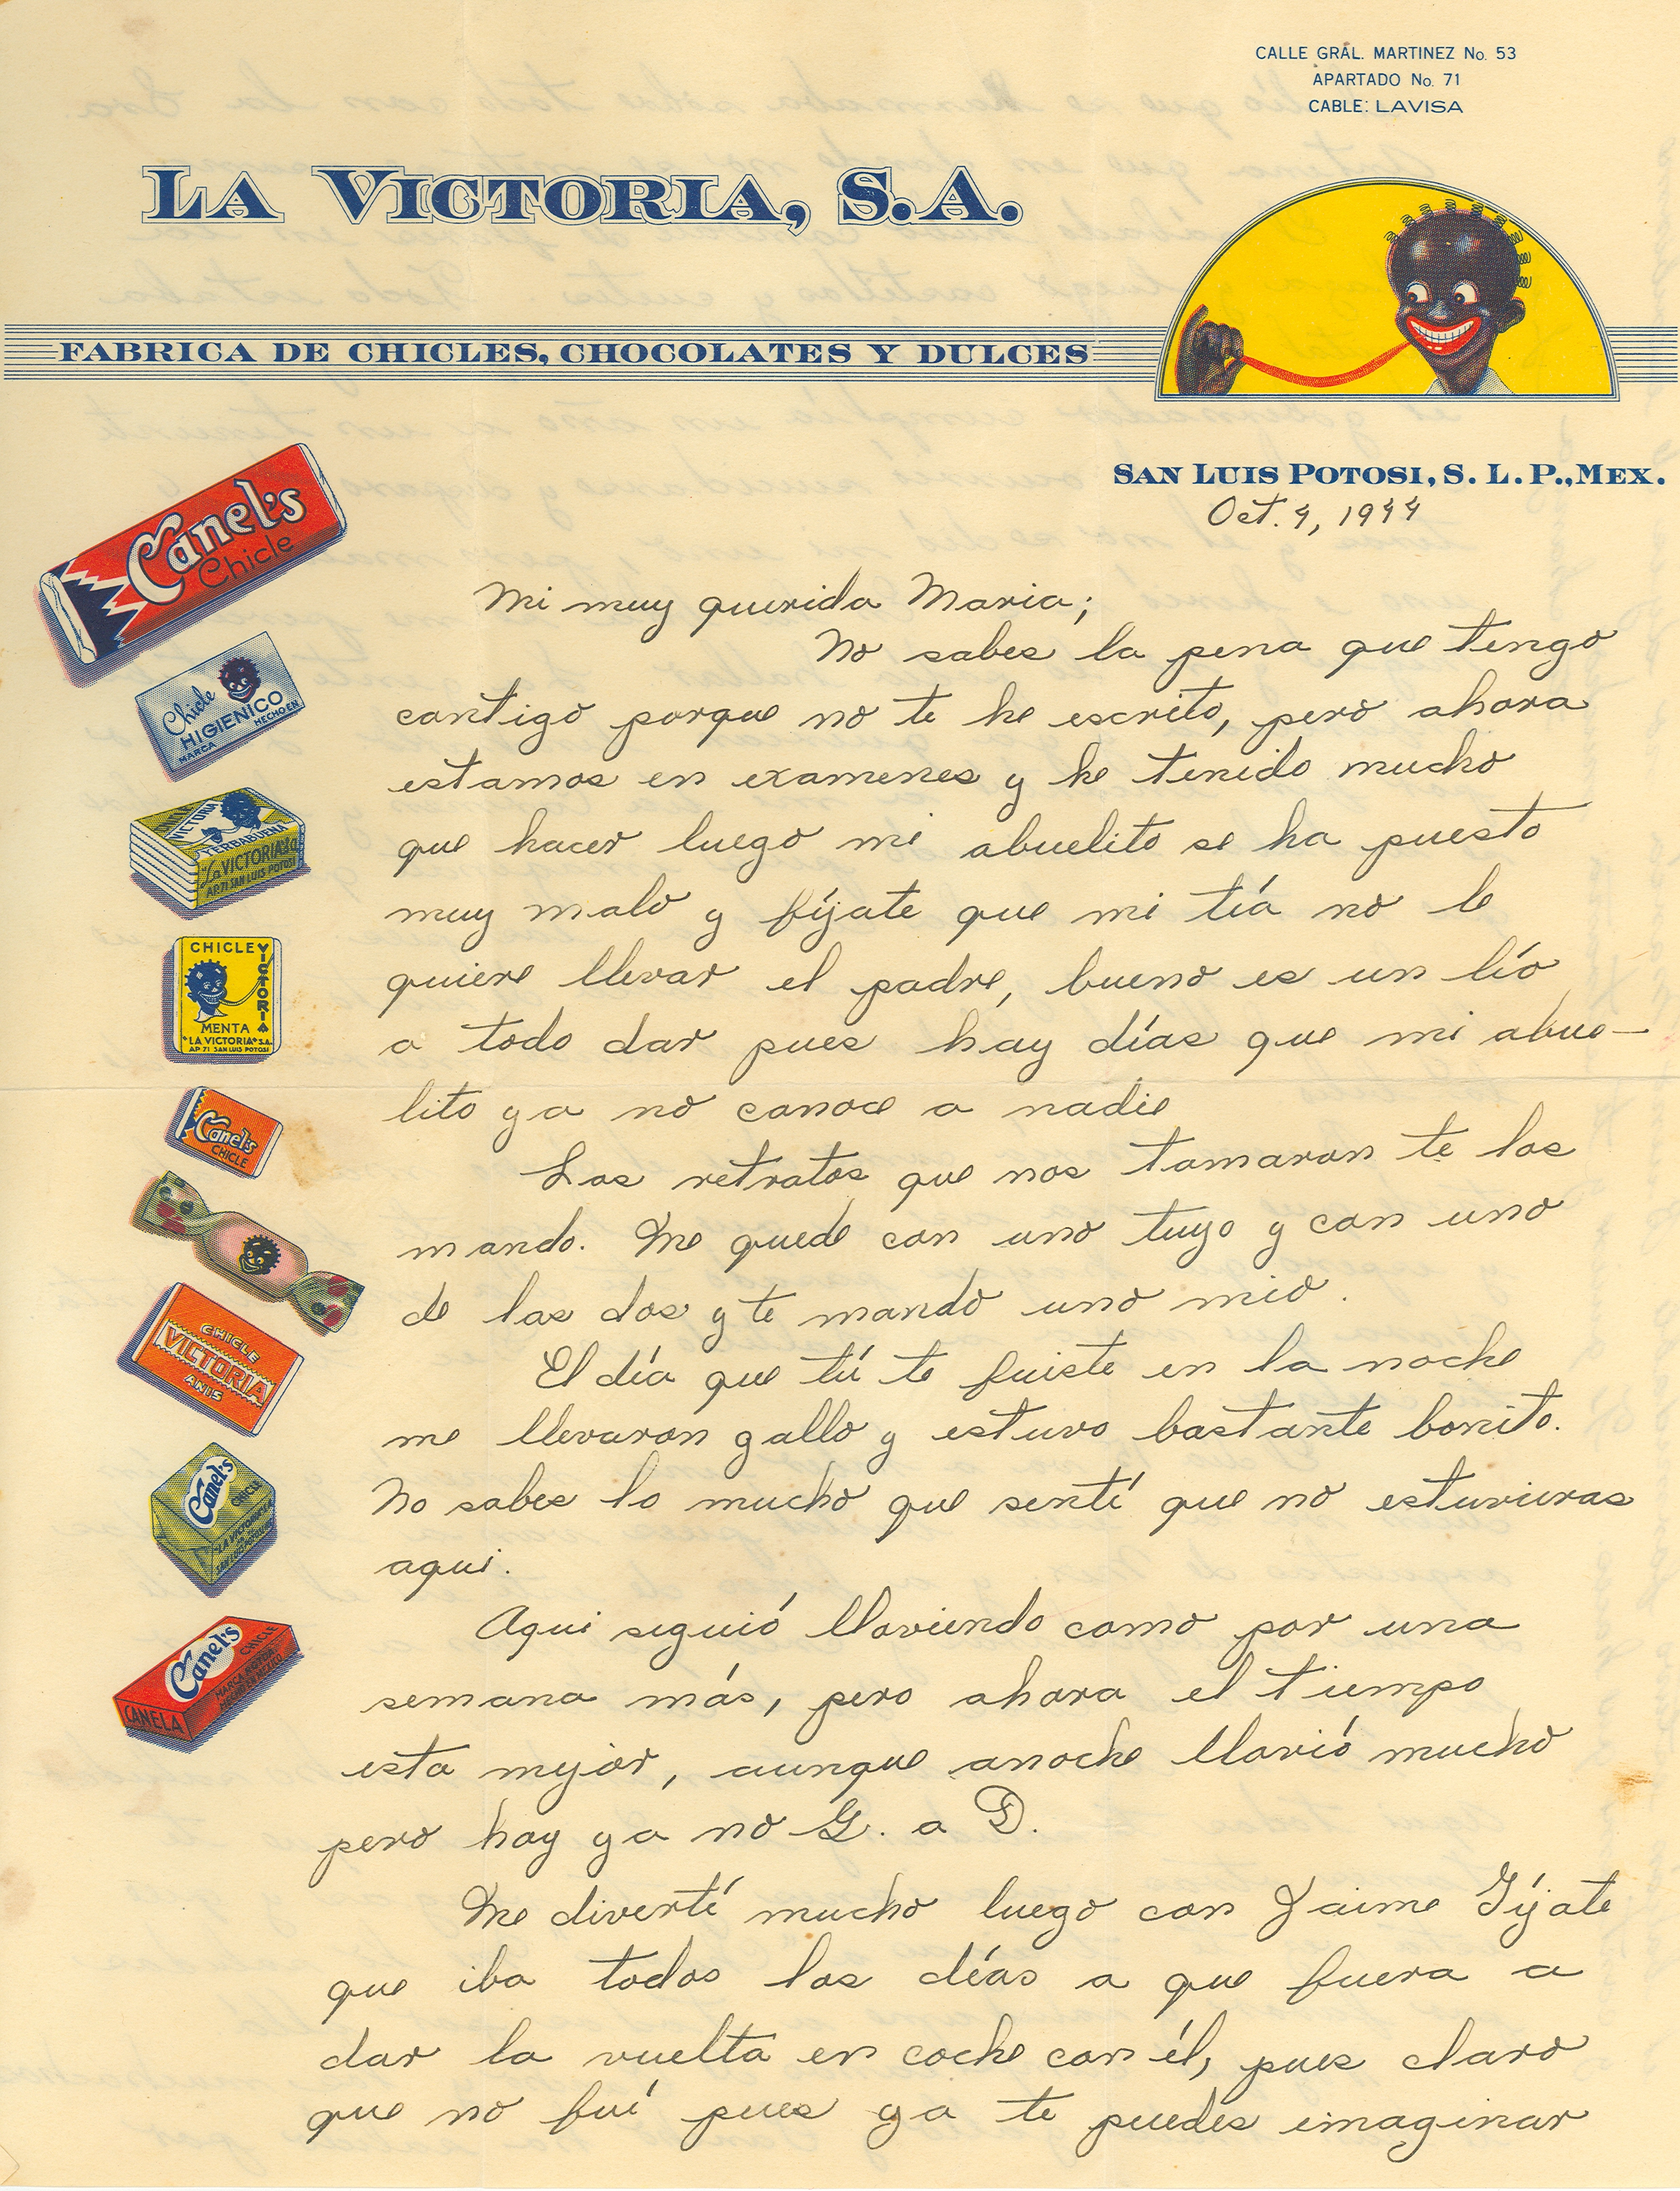 CALLE GRAL. MARTINEZ No. 53
APARTADO No. 71
CABLE: LAVISA
LA VICTORIA, S.A.
FABRICA DE CHICLES, CHOCOLATES Y DULCES
SAN LUIS POTOSI, S. L. P., MEX.
Oct. 4, 1944
Canel's
Chicle
Chicle
HIGIENICO
MARCA
HECHO EN
VICTORIA
YERBABUENA
"La VICTORIA" S.A.
AP. 71 SAN LUIS POTOSI
CHICLE
VICTORIA
MENTA
"LA VICTORIA" S.A.
AP 71 SAN LUIS POTOSI
Canel's
CHICLE
CHICLE
VICTORIA
ANIS
Canel's
CHICLE
Canel's
CHICLE
CANELA
Mi muy querida Maria;
No sabes la pena que tengo
contigo porque no te he escrito, pero ahora
estamos en examenes y he tenido mucho
que hacer luego mi abuelito se ha puesto
muy malo y fíjate que mi tía no le
quiere llevar el padre, bueno es un lío
a todo dar pues hay días que mi abue-
lito ya no conoce a nadie
Los retratos que nos tomaron te los
mando. Me quede con uno tuyo y con uno
de las dos y te mando uno mio.
El día que tú te fuiste en la noche
me llevaron gallo y estuvo bastante bonito.
No sabes lo mucho que sentí que no estuvieras
aqui.
Aqui siguió lloviendo como por una
semana más, pero ahora el tiempo
esta mejor, aunque anoche llovió mucho
pero hoy ya no G. a D.
Me divertí mucho luego con Jaime Fíjate
que iba todos los días a que fuera a
dar la vuelta en coche con él, pues claro
que no fuí pues ya te puedes imaginar